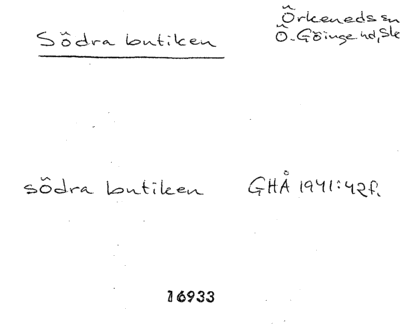 Södra butiken
Örkeneds sn
Ö. Göinge hd, Sk
södra butiken GHÅ 1941:42f.
16933